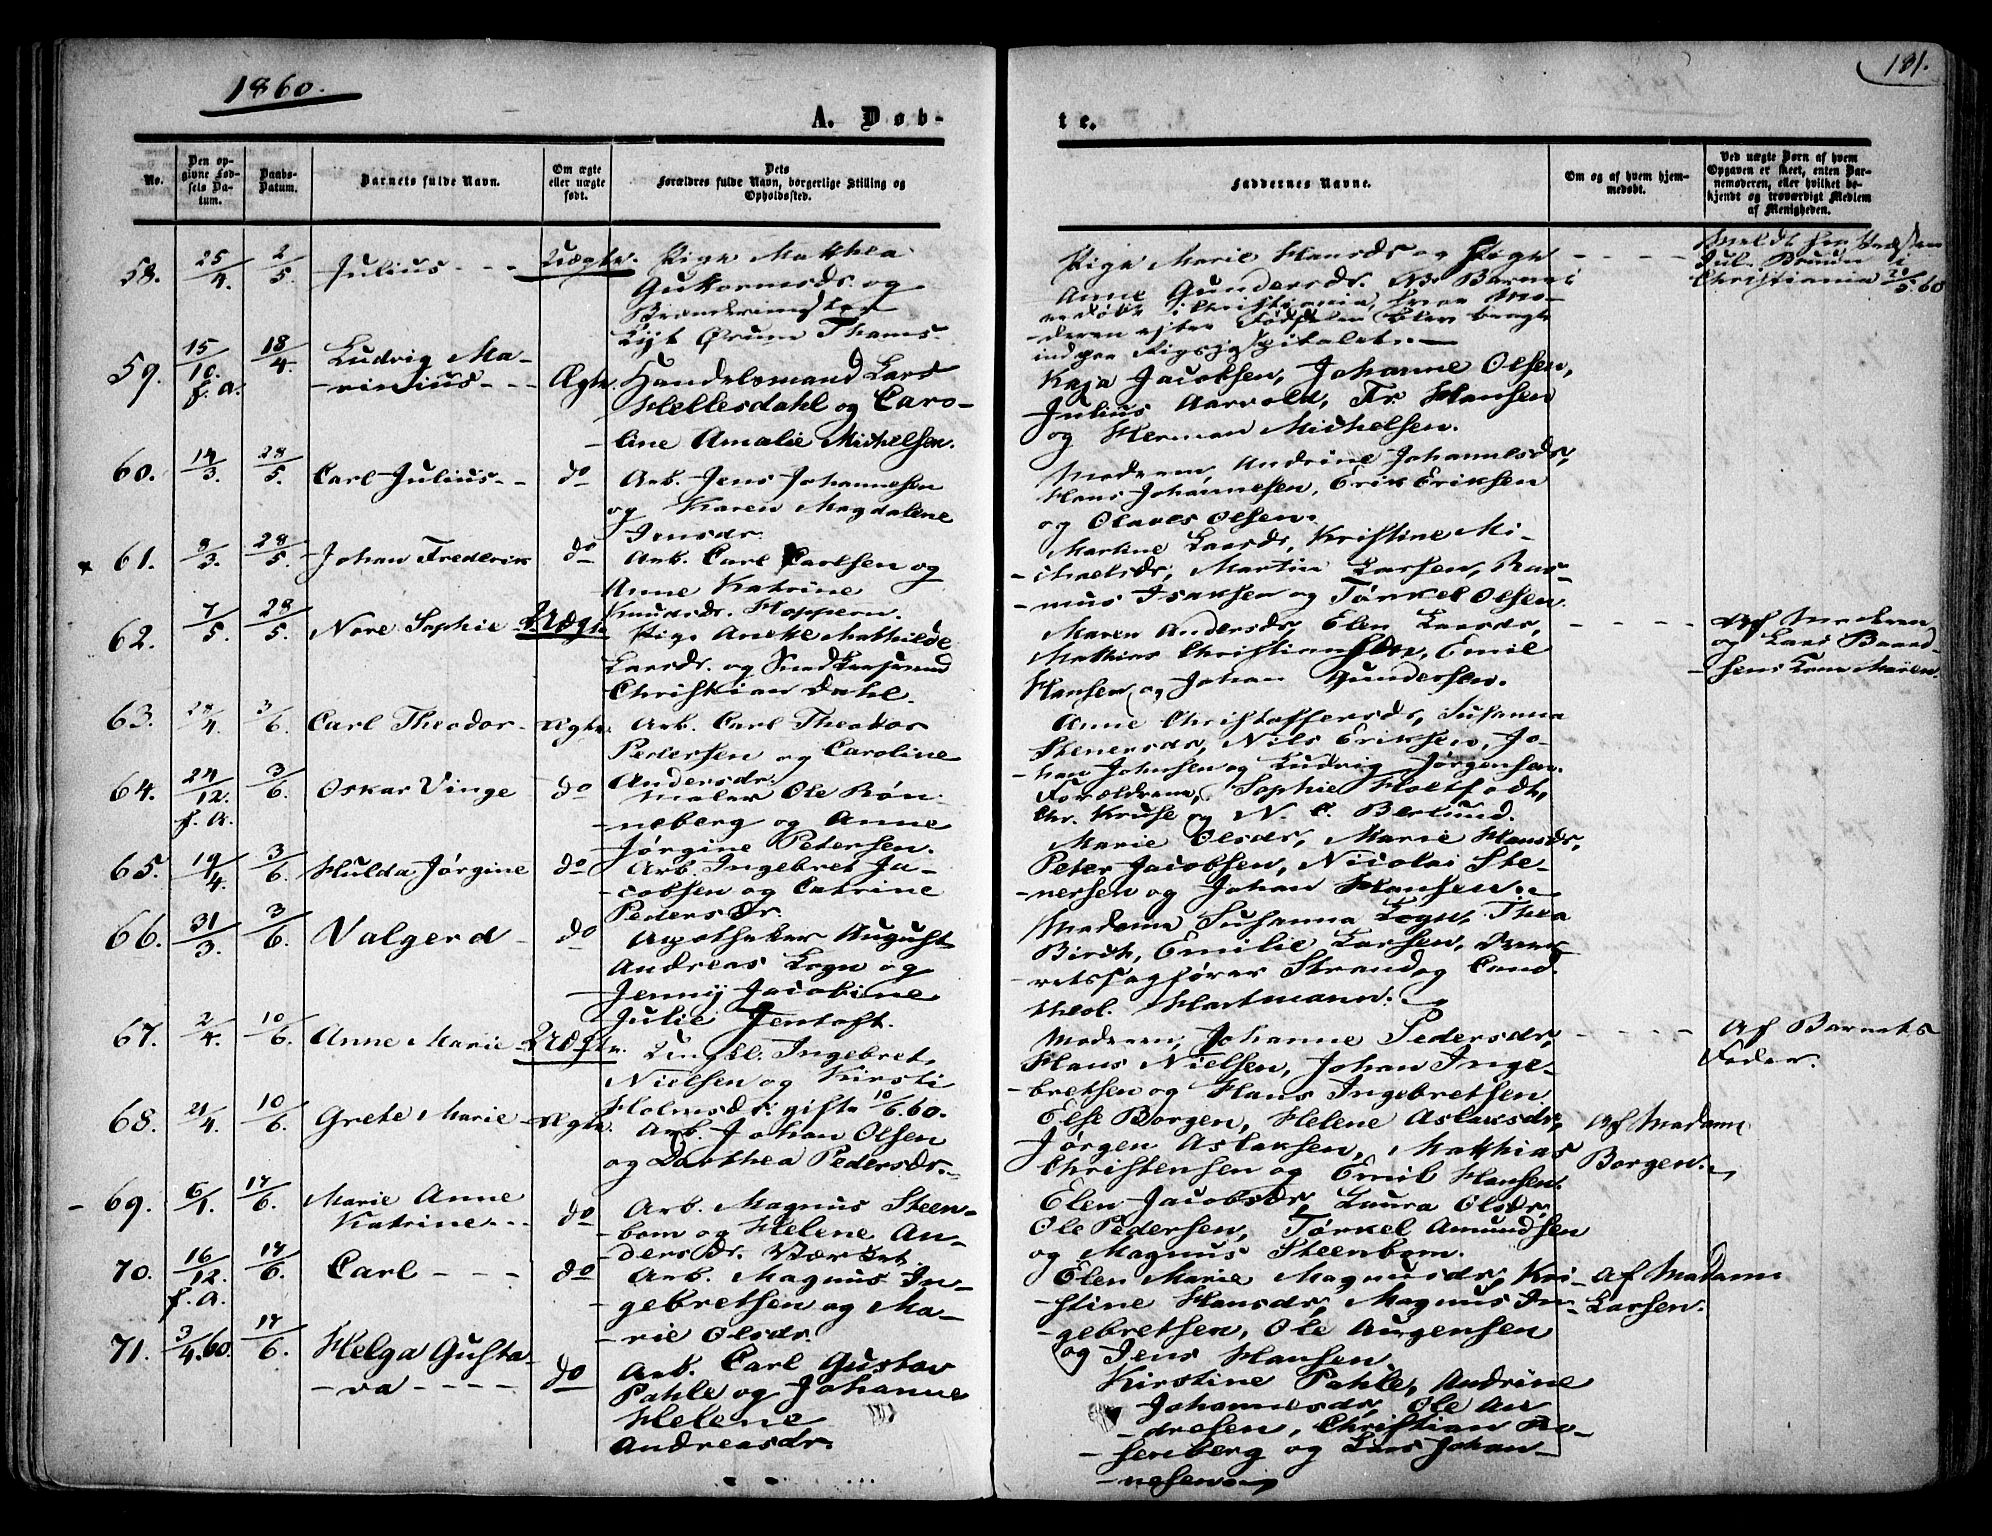 1860.
181.
A. Døb-
te.
No.
Den op-
givne Fød-
sels Da-
tum.
Daabs-
Datum.
Barnets fulde Navn.
Om ægte
eller uægte
født.
Dets
Forældres fulde Navn, borgerlige Stilling og
Opholdssted.
Faddernes Navne.
Om og af hvem hjem-
medøbt.
Ved uægte Børn af hvem
Opgaven er skeet, enten Bar-
nemoderen, eller hvilket be-
kjendt og troværdigt Medlem
af Menigheden.
58. 25/4 2/5 Julius - - - Uægte. Pige Mathea
Guttormsds. og
Thams.
Pige Marie Hansds og Pige
Anne Gundersds. NB Barnet
døbt i Christiania, hvor Mo-
deren efter Fødselen blev bragt
ind paa Rigshospitalet. -
Meldt fra Præsten
Jul. Bruun i
Christiania 20/5 60
59. 15/10 f.a. 18/4 Ludvig Ma-
rinius - - - Ægte Handelsmand Lars
Hellesdahl og Caro-
line Amalie Michelsen.
Kaja Jacobsen, Johanne Olsen,
Julius Aarvold, Fr Hansen
og Herman Michelsen.
60. 14/3 28/5 Carl Julius - - do Arb. Jens Johannesen
og Karen Magdalene
Jensdr.
Moderen, Andrine Johannesds,
Hans Johannesen, Erik Eriksen
og Olaves Olsen.
61. 8/3 28/5 Johan Frederik do Arb. Carl Carlsen og
Anne Katrine
Knudsdr. Hoppern.
Martine Larsds, Kristine Mi-
chaelsds, Martin Larsen, Ras-
mus Isaksen og Tørkel Olsen.
62. 7/5 28/5 Nore Sophie Uægte Pige Anette Mathilde
Larsdr. og Snedkersvend
Christian Dahl.
Maren Andersds, Elen Larsds,
Mathias Christiansen, Emil
Hansen og Johan Gundersen.
Af Moderen
og Lars Baard-
sens Kone Maren.
63. 28/4 3/6 Carl Theodor - Ægte. Arb. Carl Theodor
Pedersen og Caroline
Andersdr.
Anne Christoffersds, Susanna
Stenersds, Nils Eriksen, Jo-
han Johnsen og Ludvig Jørgensen.
64. 24/12. f.a. 3/6 Oskar Vinge do Maler Ole Røn-
neberg og Anne
Jørgine Petersen.
Forældrene, Sophie Holtfodt,
Chr. Kruse og N. C. Berlund.
65. 19/4 3/6 Hulda Jørgine do Arb. Ingebret Ja-
cobsen og Catrine
Pedersdr.
Marie Olsds, Marie Hansds,
Peter Jacobsen, Nicolai Ste-
nersen og Johan Hansen.
66. 31/3 3/6 Valgerd - do Apotheker August
Andreas Kogn og
Jenny Jacobine
Julie Jentoft.
Madame Susanna Kogn, Thea
Birch, Emilie Larsen, Over-
retssagfører Strand og Cand.
theol. Hartmann.
67. 2/4 10/6 Anne Marie - Uægte. Ungkl. Ingebret
Nielsen og Kirsti
Holmsdr. gifte 10/6.60.
Moderen, Johanne Pedersds,
Hans Nielsen, Johan Inge-
bretsen og Hans Ingebretsen.
Af Barnets
Fader.
68. 21/4 10/6 Grete Marie - Ægte. Arb. Johan Olsen
og Dorthea Pedersds.
Else Borgen, Helene Aslaksds,
Jørgen Aslaksen, Mathias
Christensen og Emil Hansen.
Af Madame
Borgen.
69. 6/1 17/6 Marie Anne
Katrine - - - do Arb. Magnus Steen-
bom og Helene An-
dersdr. Værket.
Elen Jacobsds, Laura Olsds,
Ole Pedersen, Tørkel Amundsen
og Magnus Steenbom.
70. 16/12. f.a. 17/6 Carl - - - do Arb. Magnus In-
gebretsen og Ma-
rie Olsdr.
Elen Marie Magnusds, Kri-
stine Hansds, Magnus In-
gebretsen, Ole Aurgensen
og Jens Hansen
Af Madame
Larsen.
71. 3/4.60. 17/6 Helga Gusta-
va - - - - do Arb. Carl Gustav
Pahle og Johanne
Helene
Andreasdr.
Kirstine Pahle, Andrine
Johannesds, Ole An-
dresen, Christian Ro-
senberg og Lars Johan-
nesen